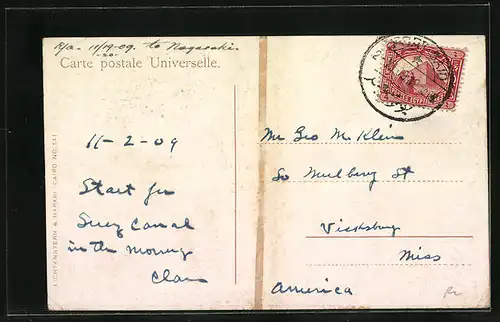 R/a - 11/19-09. to Nagasaki.
-20-
Carte postale Universelle.
11-2-09
Start for
Suez Canal
in the morning
Clan
Mr Geo M Klein
So Mulberry St
Vicksburg
Miss
America
LICHTENSTERN & HARARI, CAIRO NO. 141
PORT SAID